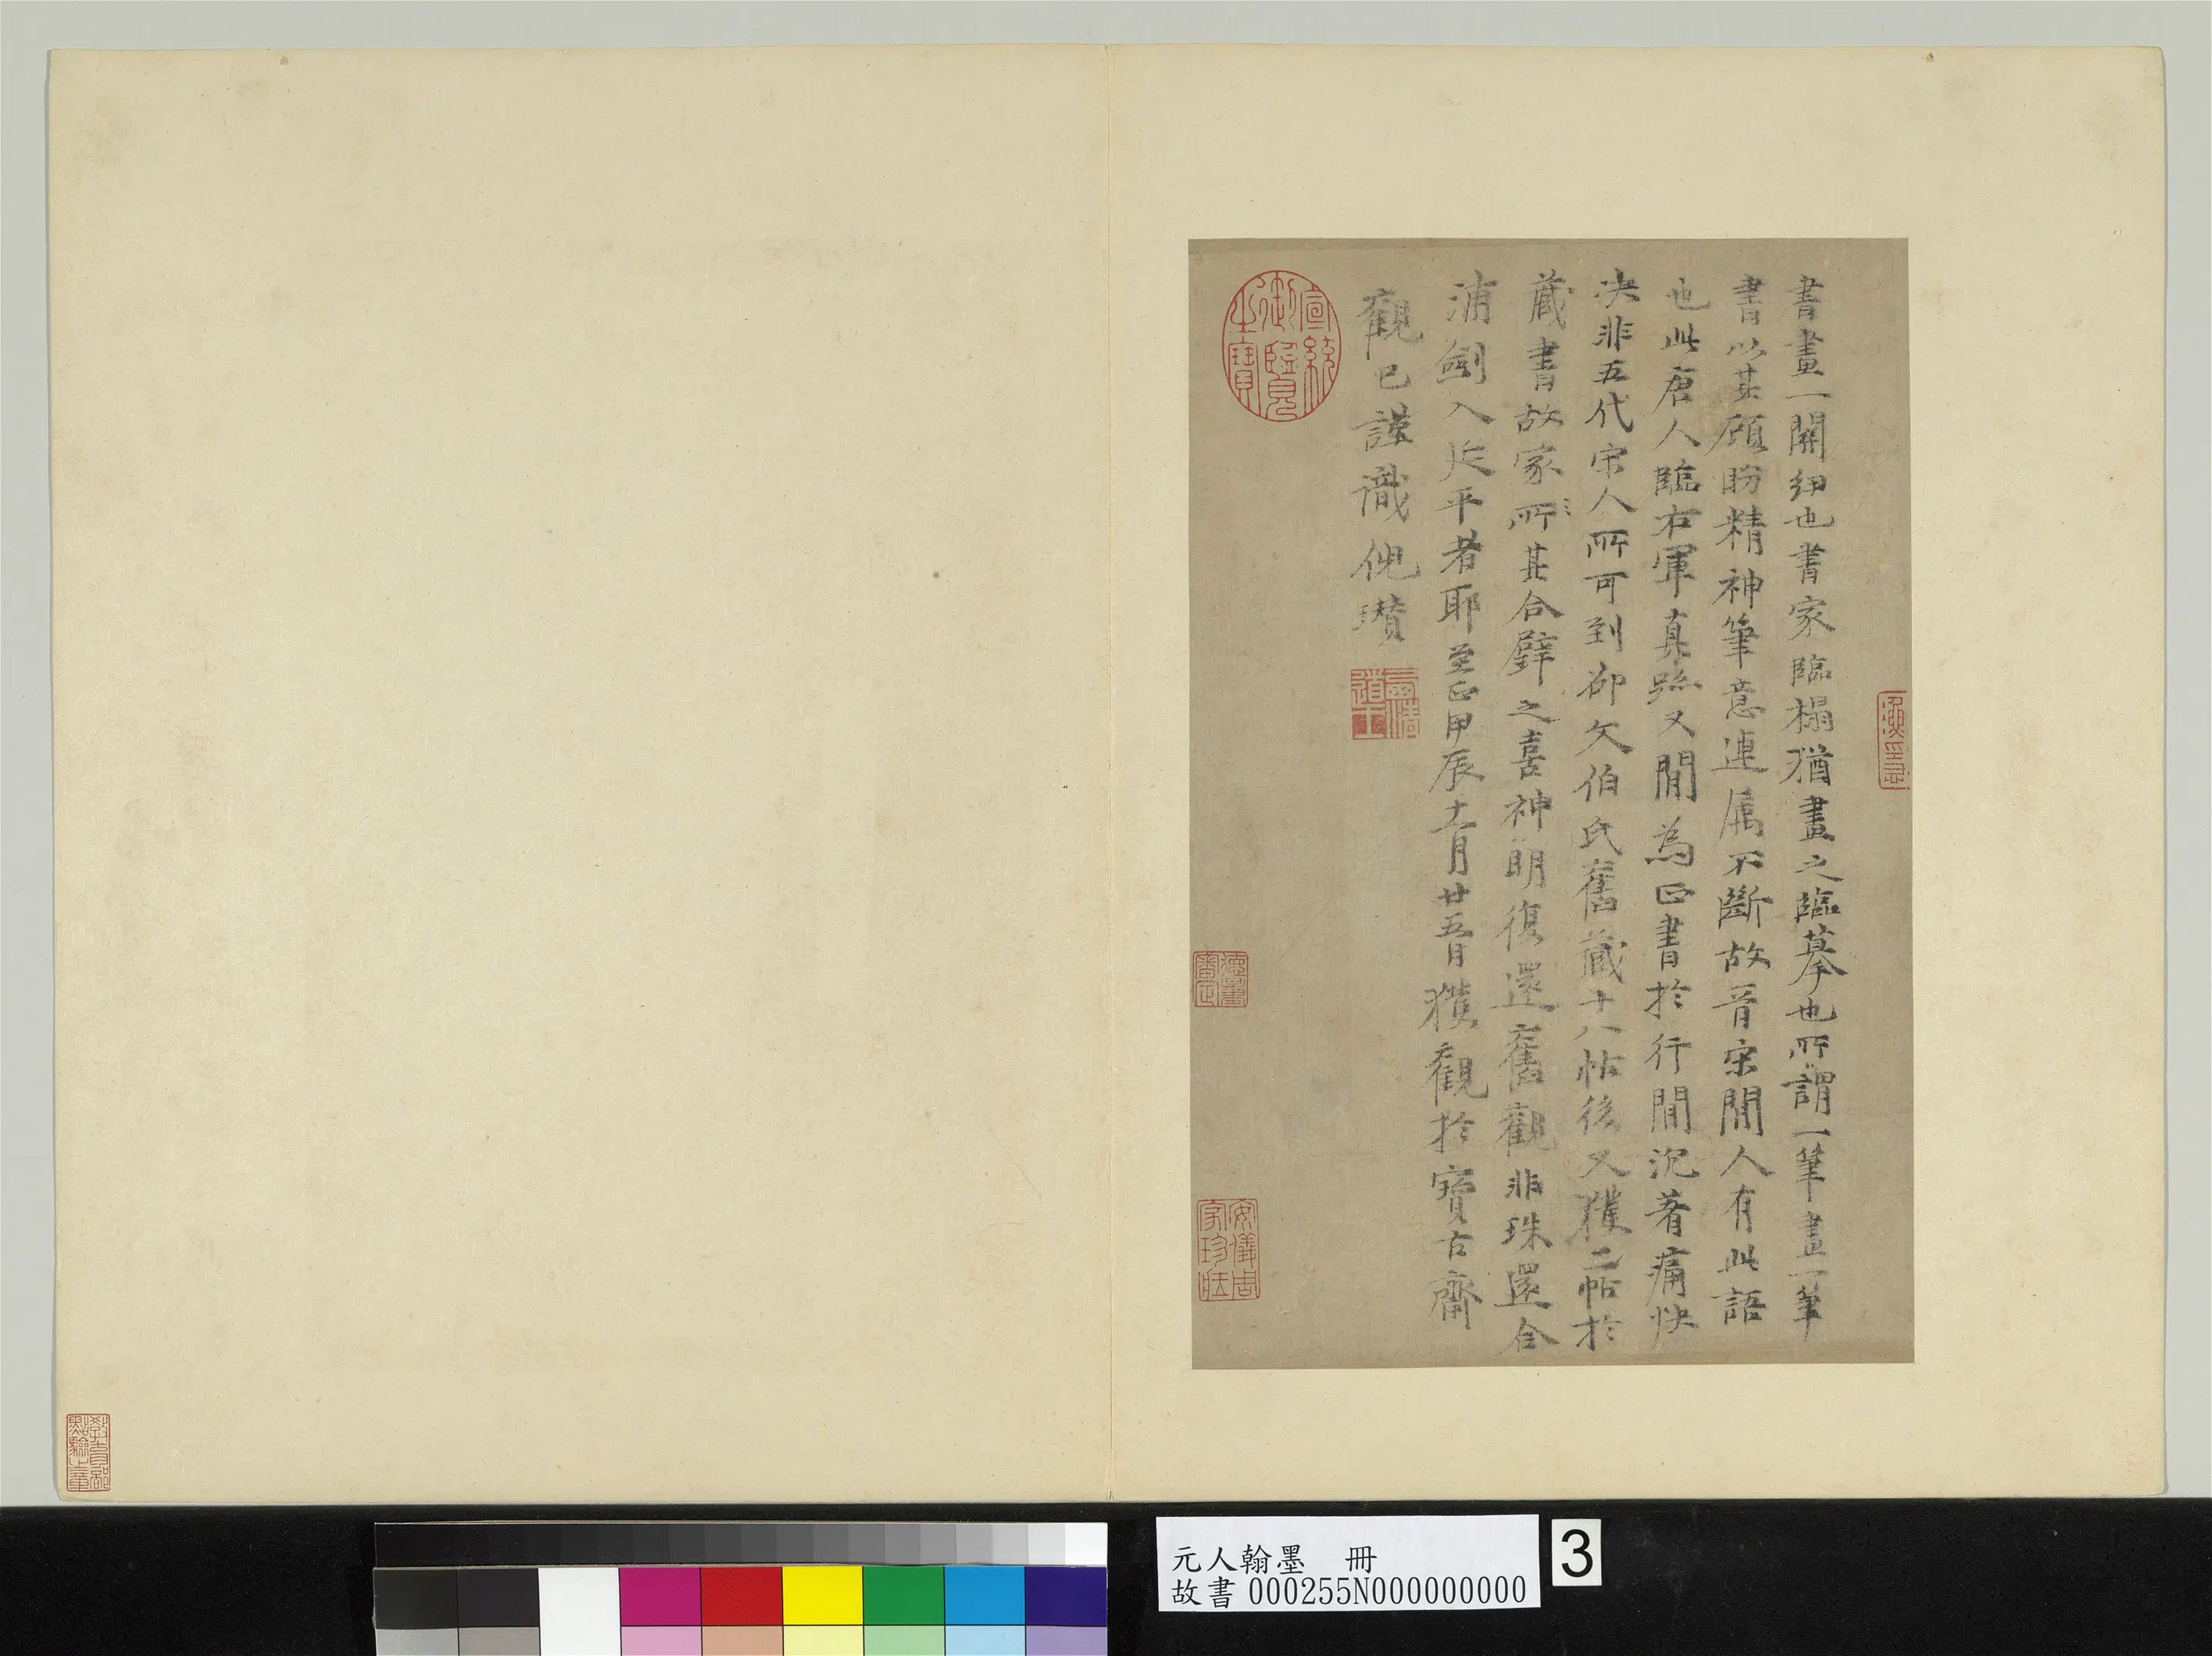 書畫一關紐也書家臨榻猶畫之臨摹也所謂一筆畫一筆
書以其顧盼精神筆意連属不斷故晉宋間人有此語
也此唐人臨右軍真跡又間為正書於行間沉著痛快
決非五代宋人所可到卻文伯氏舊藏十八帖後又獲二帖於
藏書故家所其合璧之喜神明復還舊觀非珠還合
浦劍入延平者耶至正甲辰十一月廿五日獲觀於寶古齋
觀已謹識倪瓚
宣統御覽之寶
安儀周家珍藏
教育部點驗之章
元人翰墨 冊
故書000255N000000000
3